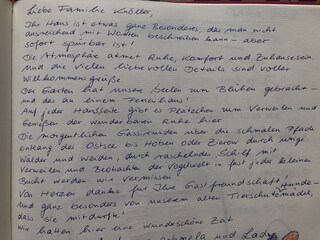 Liebe Familie Knöller,
Ihr Haus ist etwas ganz Besonderes, das man nicht
ausreichend mit Worten beschreiben kann - aber
sofort spürbar ist!
Die Atmosphäre atmet Ruhe, Komfort und Zuhausesein
und die vielen liebevollen Details sind voller
Willkommensgrüße
Der Garten hat unsere Seelen zum Blühen gebracht -
und das an einem Ferienhaus
Auf jeder Hausseite gibt es Plätzchen zum Verweilen und
Genießen der wunderbaren Ruhe hier
Die morgentlichen Gassirunden über die schmalen Pfade
entlang der Ostsee bis Hoben oder Zierow durch junge
Wälder und Weiden, durch raschelndes Schilf mit
Verweilen und Beobachten der Vogelwelt in fast jeder kleinen
Bucht werden wir vermissen
Von Herzen danke für Ihre Gastfreundschaft!
und ganz besonders von unserem alten Tierschutzhundemädel,
dass sie mit durfte!
Wir hatten hier eine wunderschöne Zeit
und Lady